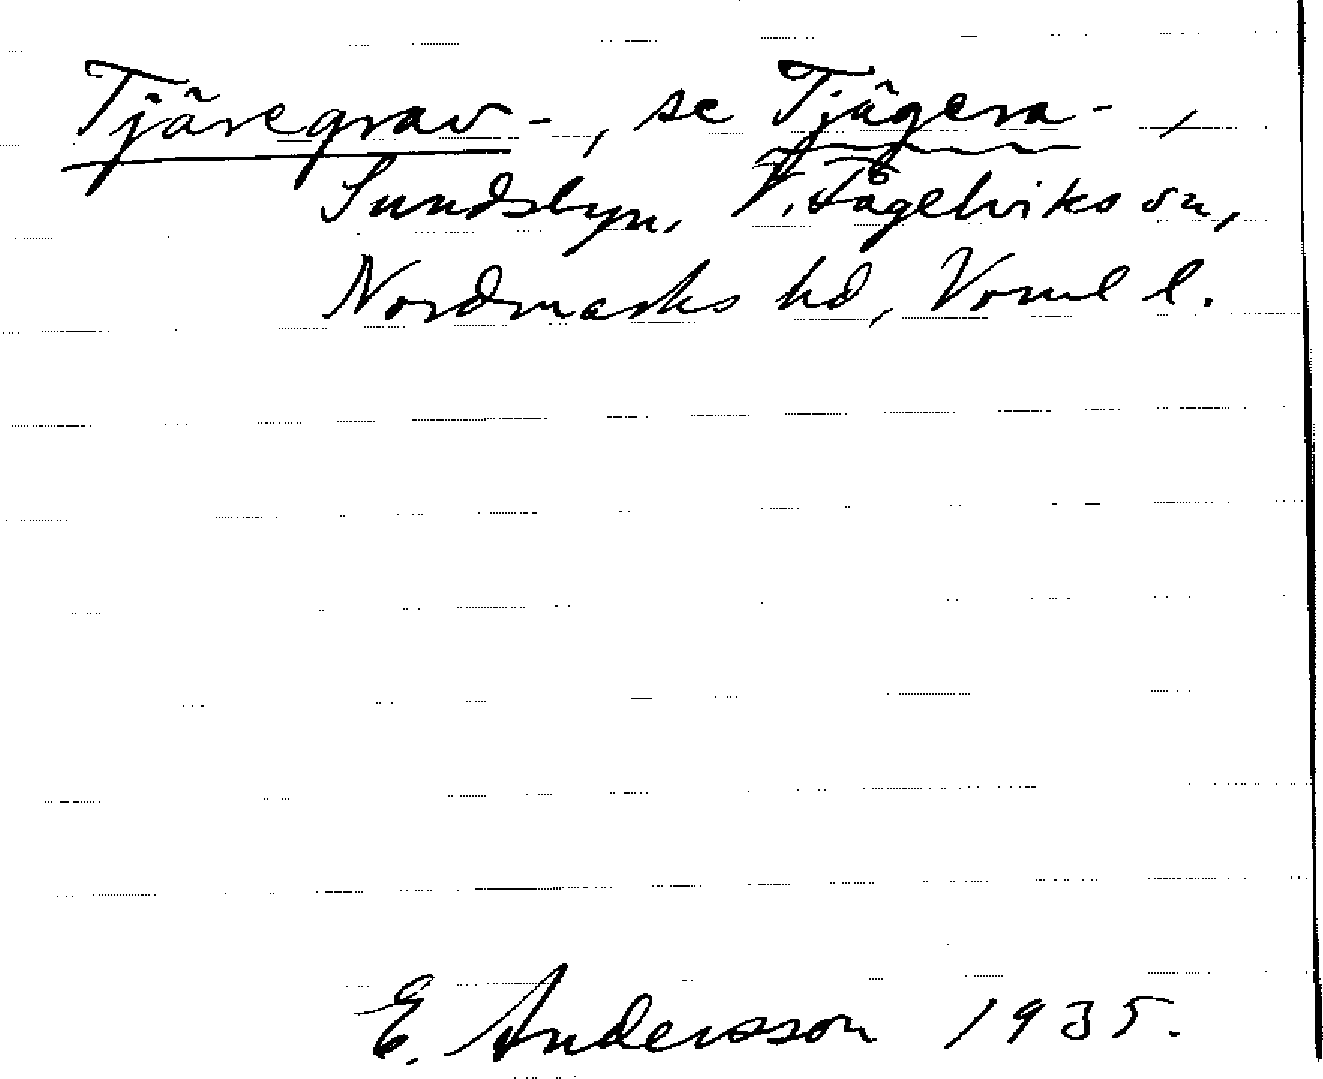 Tjäregrav-, se Tjägera-,
Sundsbyn, V. Fågelviks sn,
Nordmarks hd, Vrml l.
E. Andersson 1935.